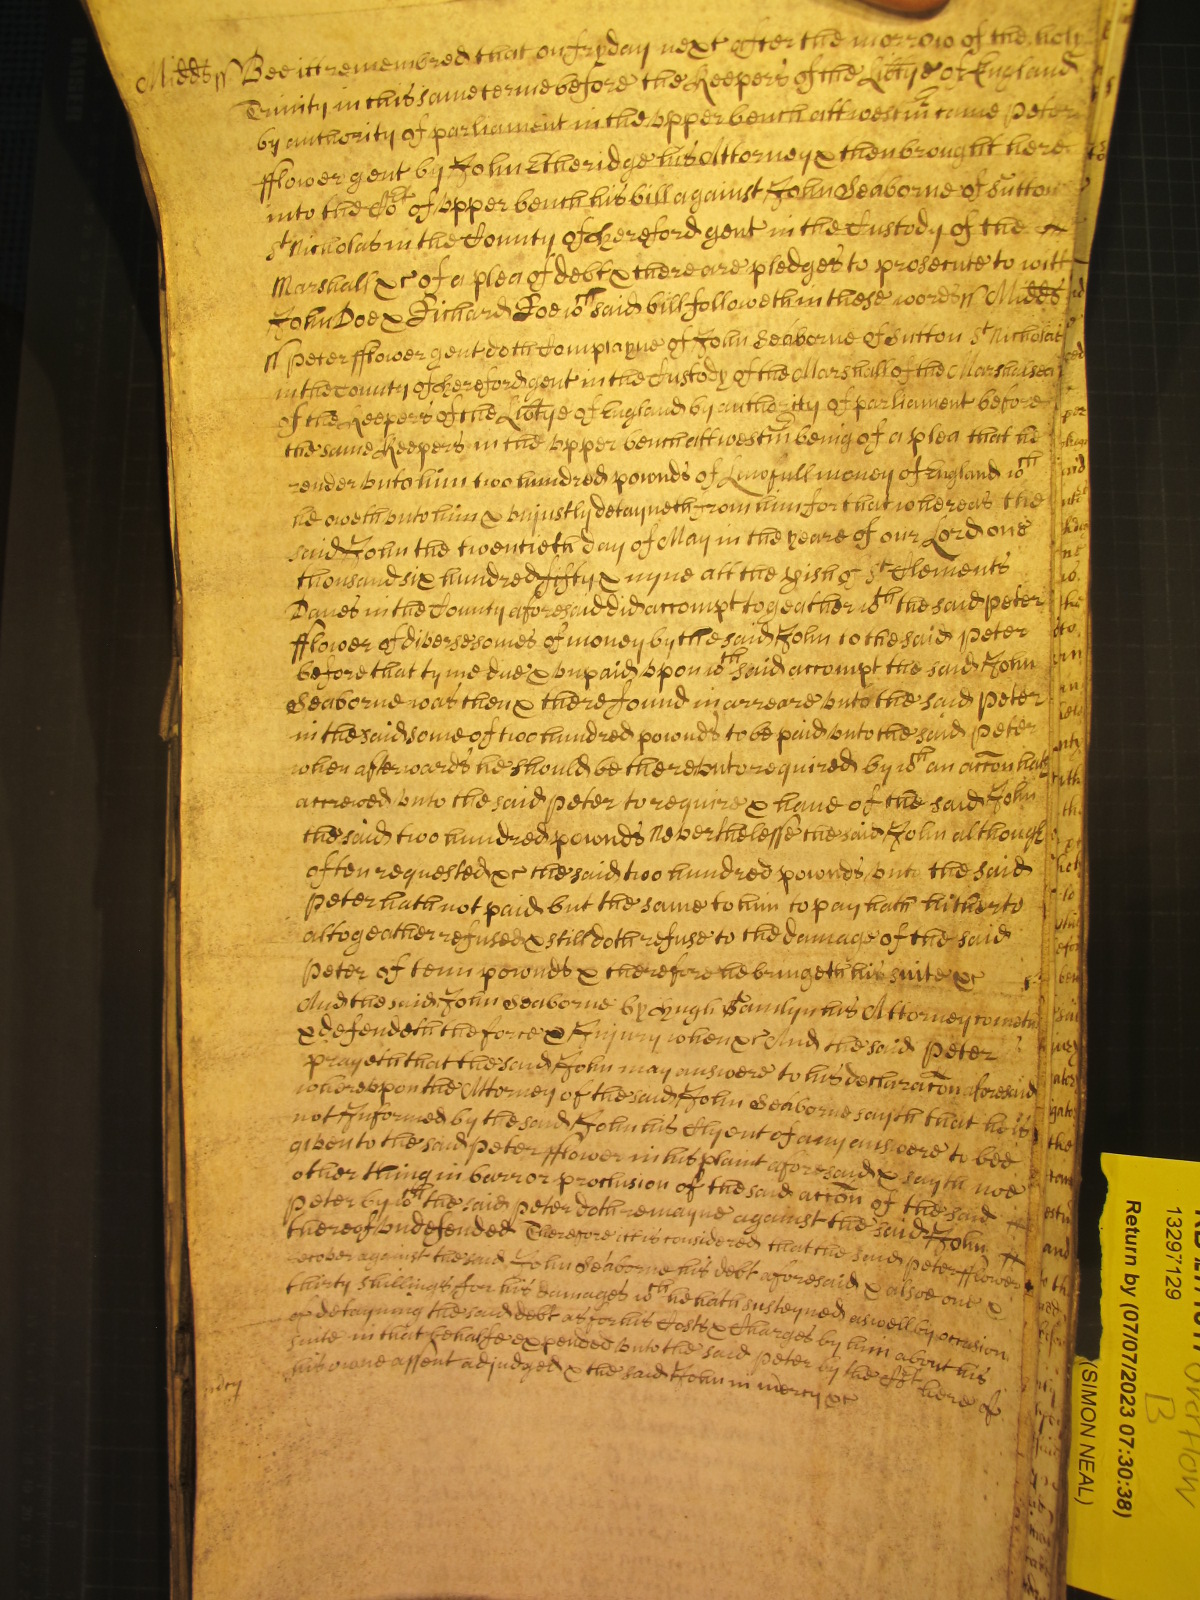 Midds ss Bee itt remembred that on fryday next after the morrow of the holy
Trinity in this same terme before the Keepers of the Lib'tye of England
by authority of parliament in the vpper bench att westm' came Peter
fflower gent by John Etheridge his Attorney & then brought here
into the Co'rt of vpper bench his bill against John Seaborne of Sutton
St Nicholas in the County of hereford gent in the Custody of the
Marshall &c of a plea of debt & there are pledges to prosecute to witt
John Doe & Richard Roe wch said bill followeth in these words ss Midds
ss Peter fflower gent doth Complayne of John Seaborne of Sutton St Nicholas
in the County of hereford gent in the Custody of the Marshall of the Marshalsea
of the Keepers of the Lib'tye of England by authority of parliament before
the same Keepers in the vpper bench att westm' being of a plea that he
render vnto him two hundred pownds of Lawfull money of England wch
he oweth vnto him & vniustly detayneth from him for that whereas the
said John the twentieth day of May in the yeare of our Lord one
thousand six hundred fifty & nyne att the p'ish of St Clements
Danes in the County aforesaid did accompt togeather wth the said Peter
fflower of diverse somes of money by the said John to the said Peter
before that tyme due & vnpaid vpon wch said accompt the said John
Seaborne was then & there found in arreare vnto the said Peter
in the said some of two hundred pownds to be paid vnto the said Peter
when afterwards he should be therevnto required by wch an acc'on hath
accrewed vnto the said Peter to require & haue of the said John
the said two hundred pownds Neverthelesse the said John although
often requested &c the said two hundred pownds vnto the said
Peter hath not paid but the same to him to pay hath hitherto
altogeather refused & still doth refuse to the damage of the said
Peter of tenn pownds & therefore he bringeth his suite &c
And the said John Seaborne by Hugh his Attorney cometh
& defendeth the force & Iniury when &c And the said Peter
prayeth that the said John may answere to his declarac'on aforesaid
wherevpon the Attorney of the said John Seaborne sayth that he is
not Informed by the said John his Clyent of any answere to bee
given to the said Peter fflower in his plaint aforesaid & sayth noe
other thing in barr or preclusion of the said acc'on of the said
Peter by wch the said Peter doth remayne against the said John
thereof vndefended Therefore itt is considered that the said Peter fflower
recover against the said John Seaborne his debt aforesaid & alsoe one &
thirty shillings for his damages wch he hath susteyned aswell by occasion
of detayning the said debt as for his Costs & Charges by him about his
suite in that behalfe expended vnto the said Peter by the Co'rt here of
his owne assent adjudged & the said John in mercy &c
mercy
13297129
Return by (07/07/2023 07:30:38)
(SIMON NEAL)
Overflow
B